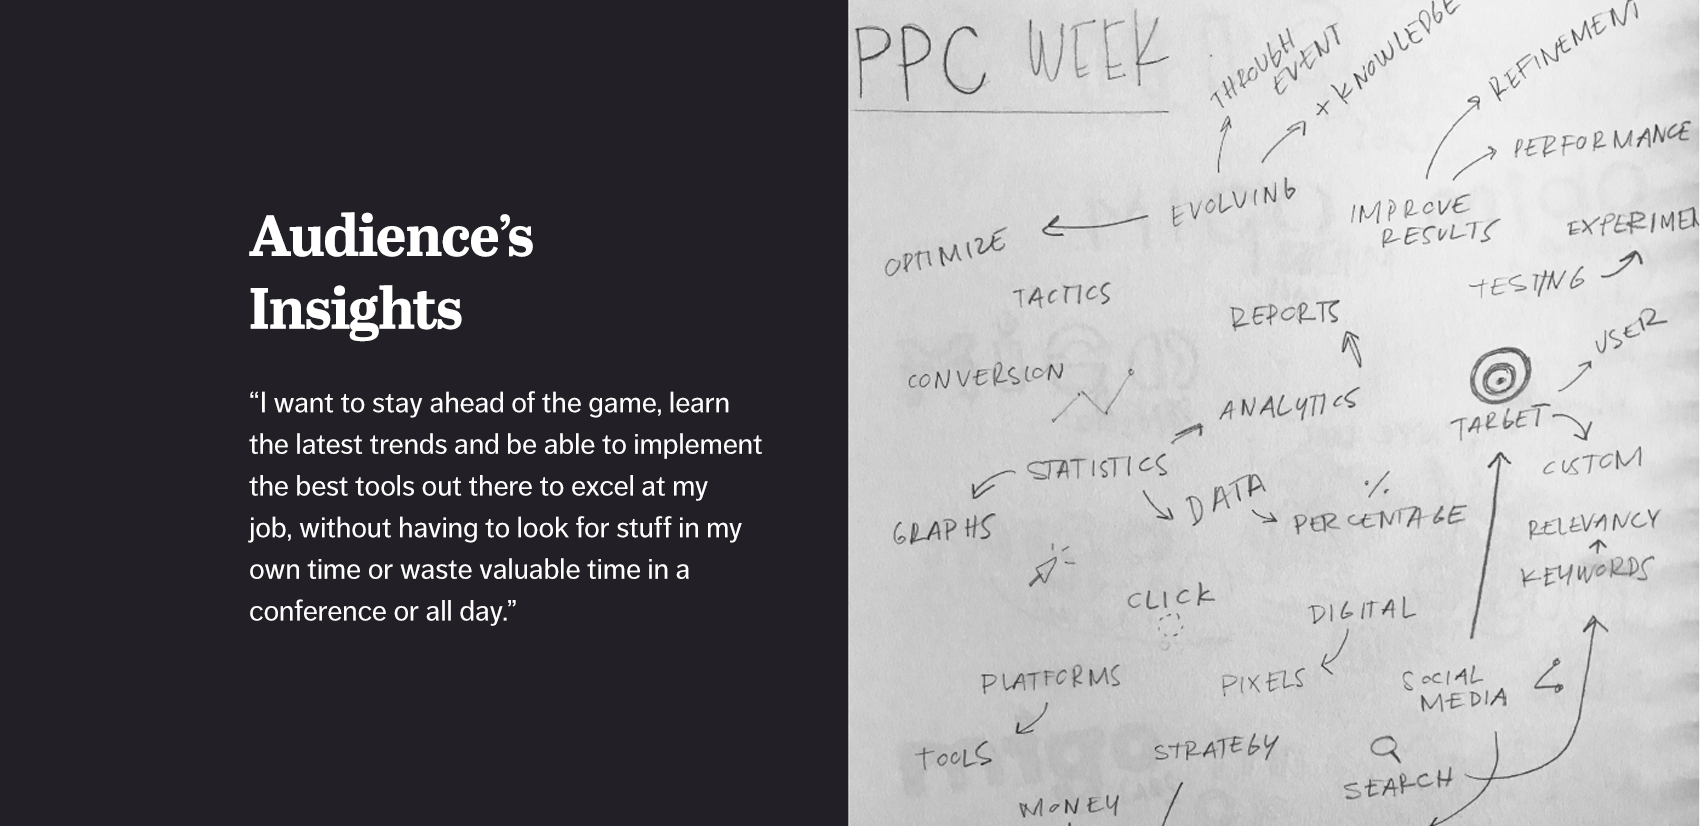 Audience’s
Insights
“I want to stay ahead of the game, learn
the latest trends and be able to implement
the best tools out there to excel at my
job, without having to look for stuff in my
own time or waste valuable time in a
conference or all day.”
PPC WEEK
THROUGH
EVENT
+ KNOWLEDGE
REFINEMENT
PERFORMANCE
EVOLVING
IMPROVE
RESULTS
EXPERIMEN
OPTIMIZE
TESTING
TACTICS
REPORTS
USER
CONVERSION
ANALYTICS
TARGET
STATISTICS
CUSTOM
DATA
%
GRAPHS
PERCENTAGE
RELEVANCY
KEYWORDS
CLICK
DIGITAL
PLATFORMS
PIXELS
SOCIAL
MEDIA
TOOLS
STRATEGY
SEARCH
MONEY